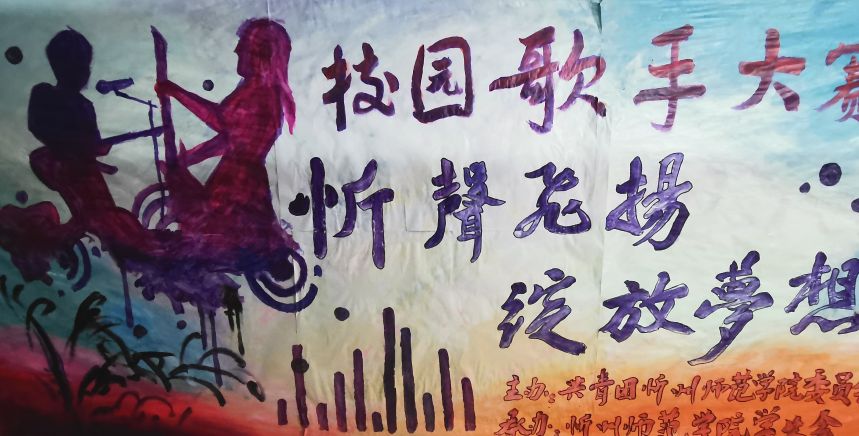 校园歌手大赛
忻聲飛揚
绽放夢想
主办:共青团忻州师范学院委员
承办:忻州师范学院学生会